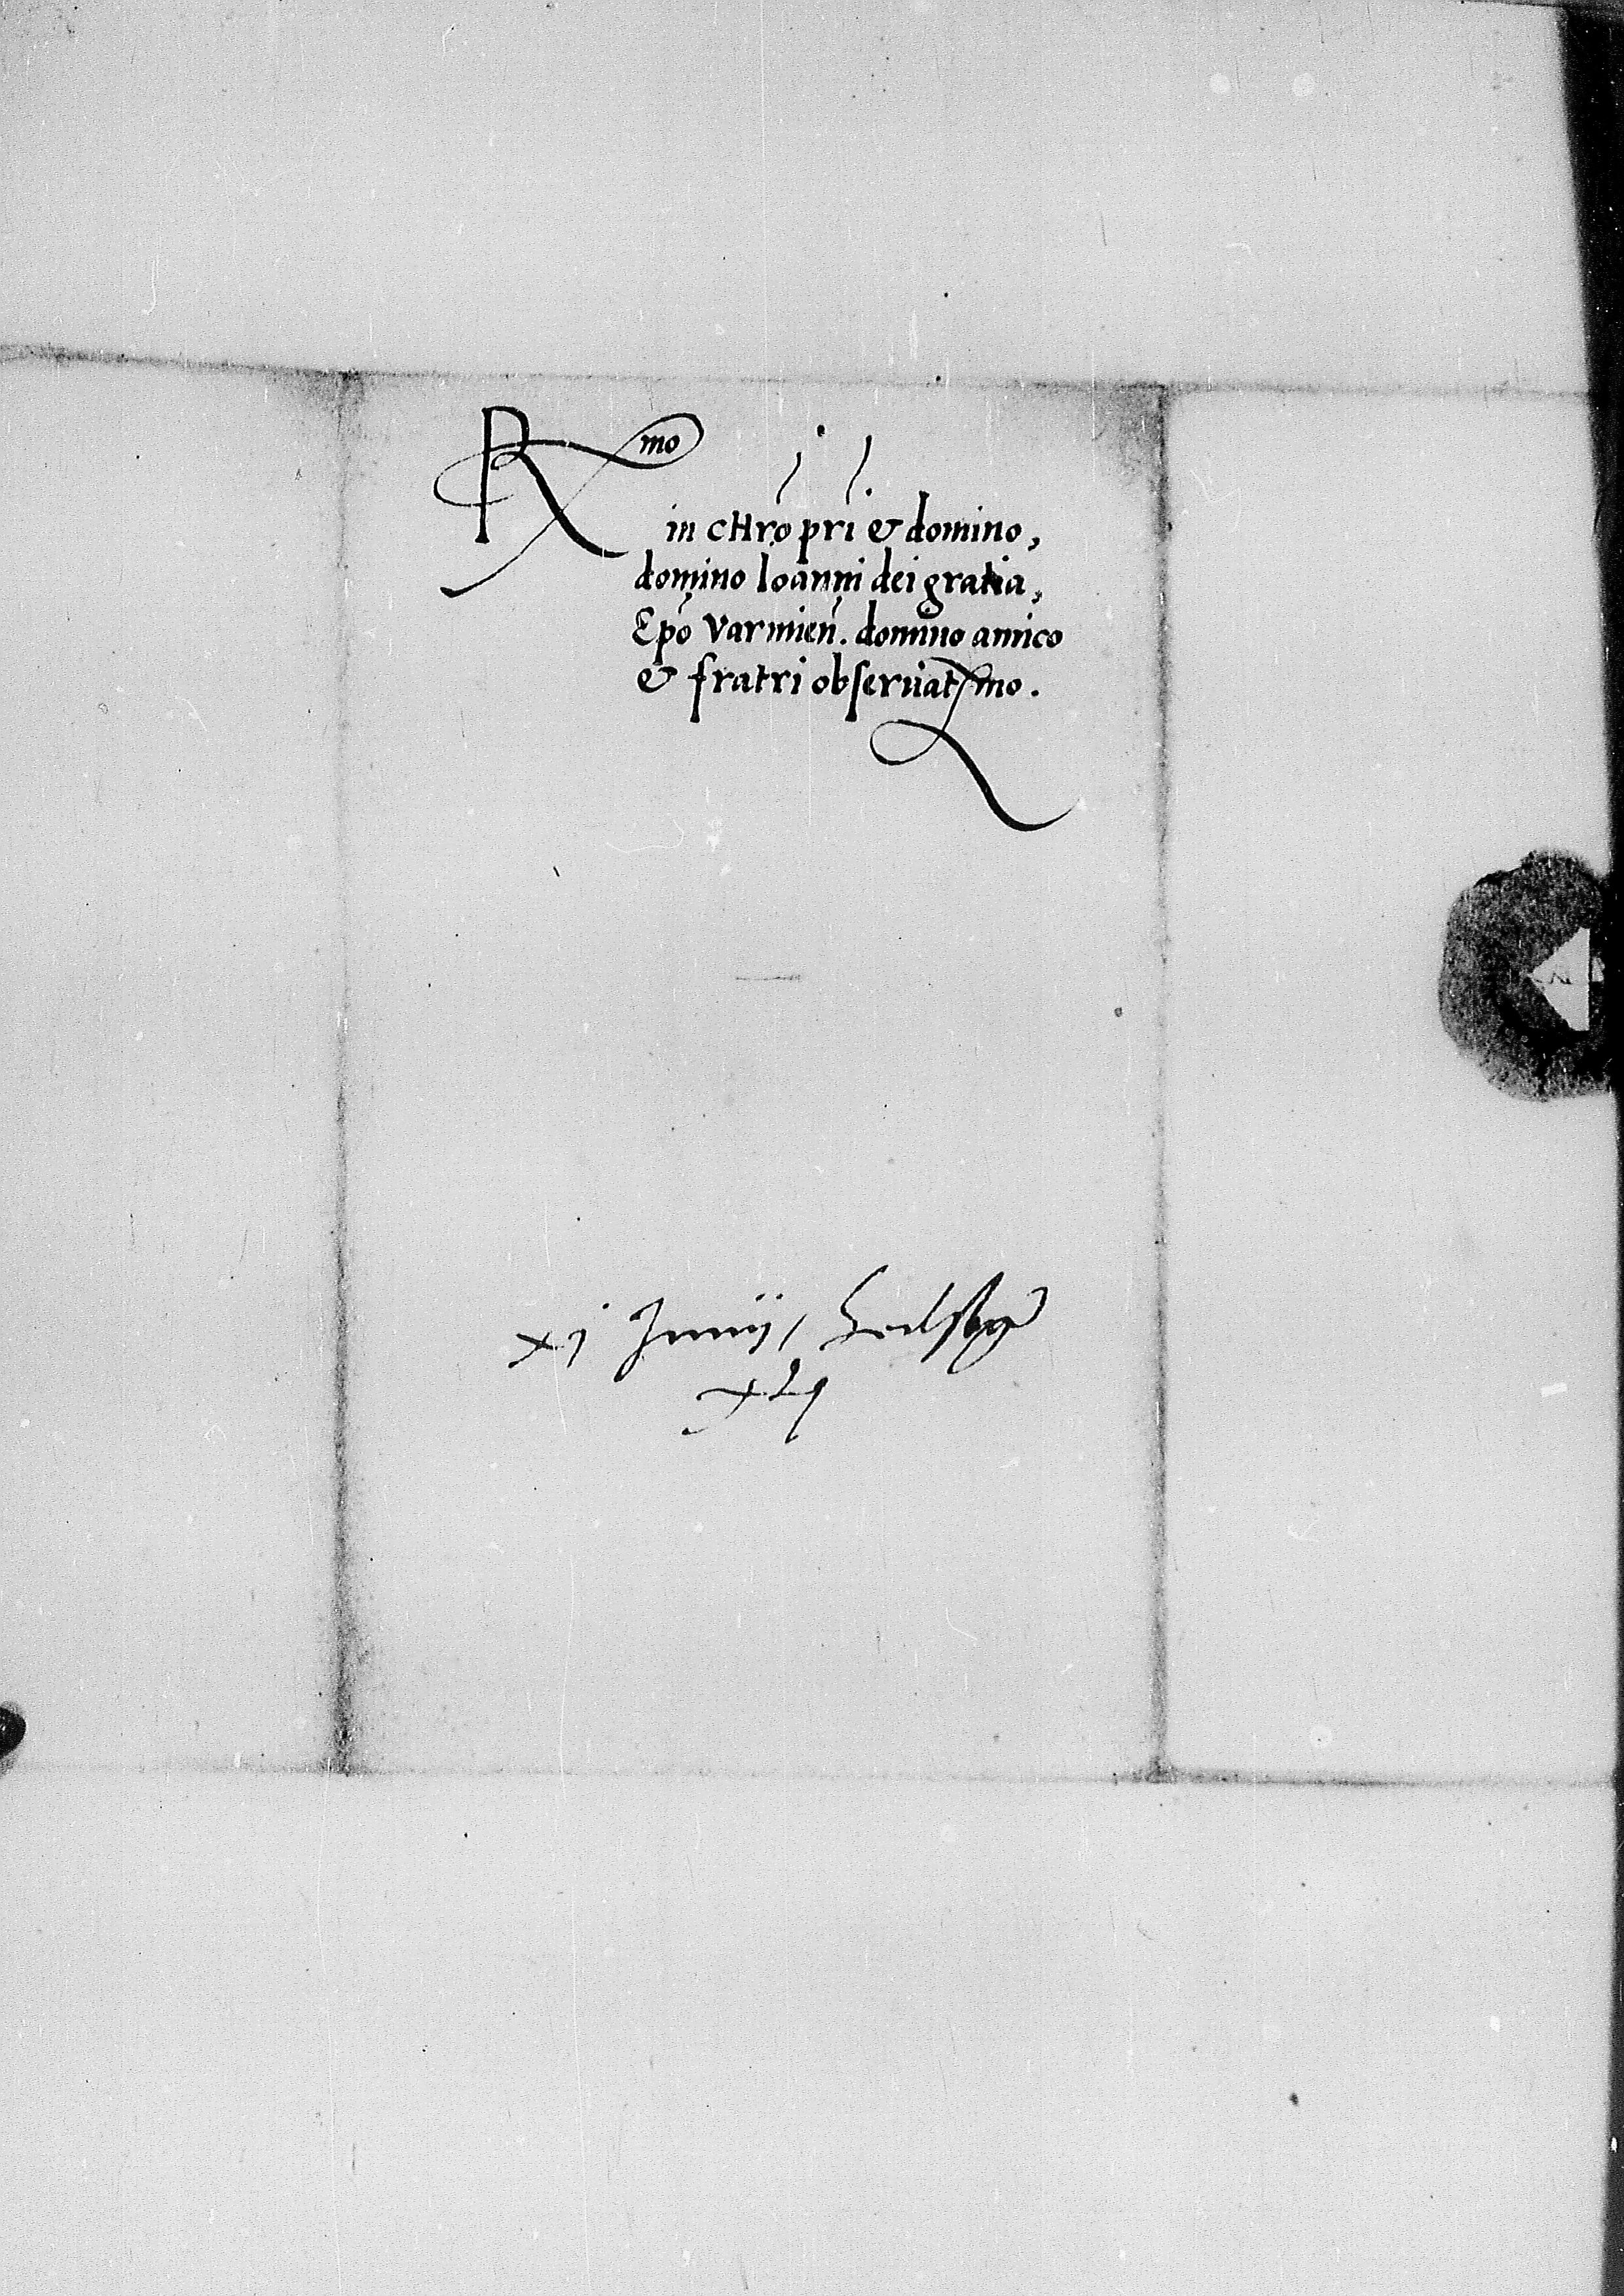 Rmo
in cHro pri & domino,
domino Ioanni dei gratia,
Epo Varmien. domino amico
& fratri obseruatsmo.
xi Junij /